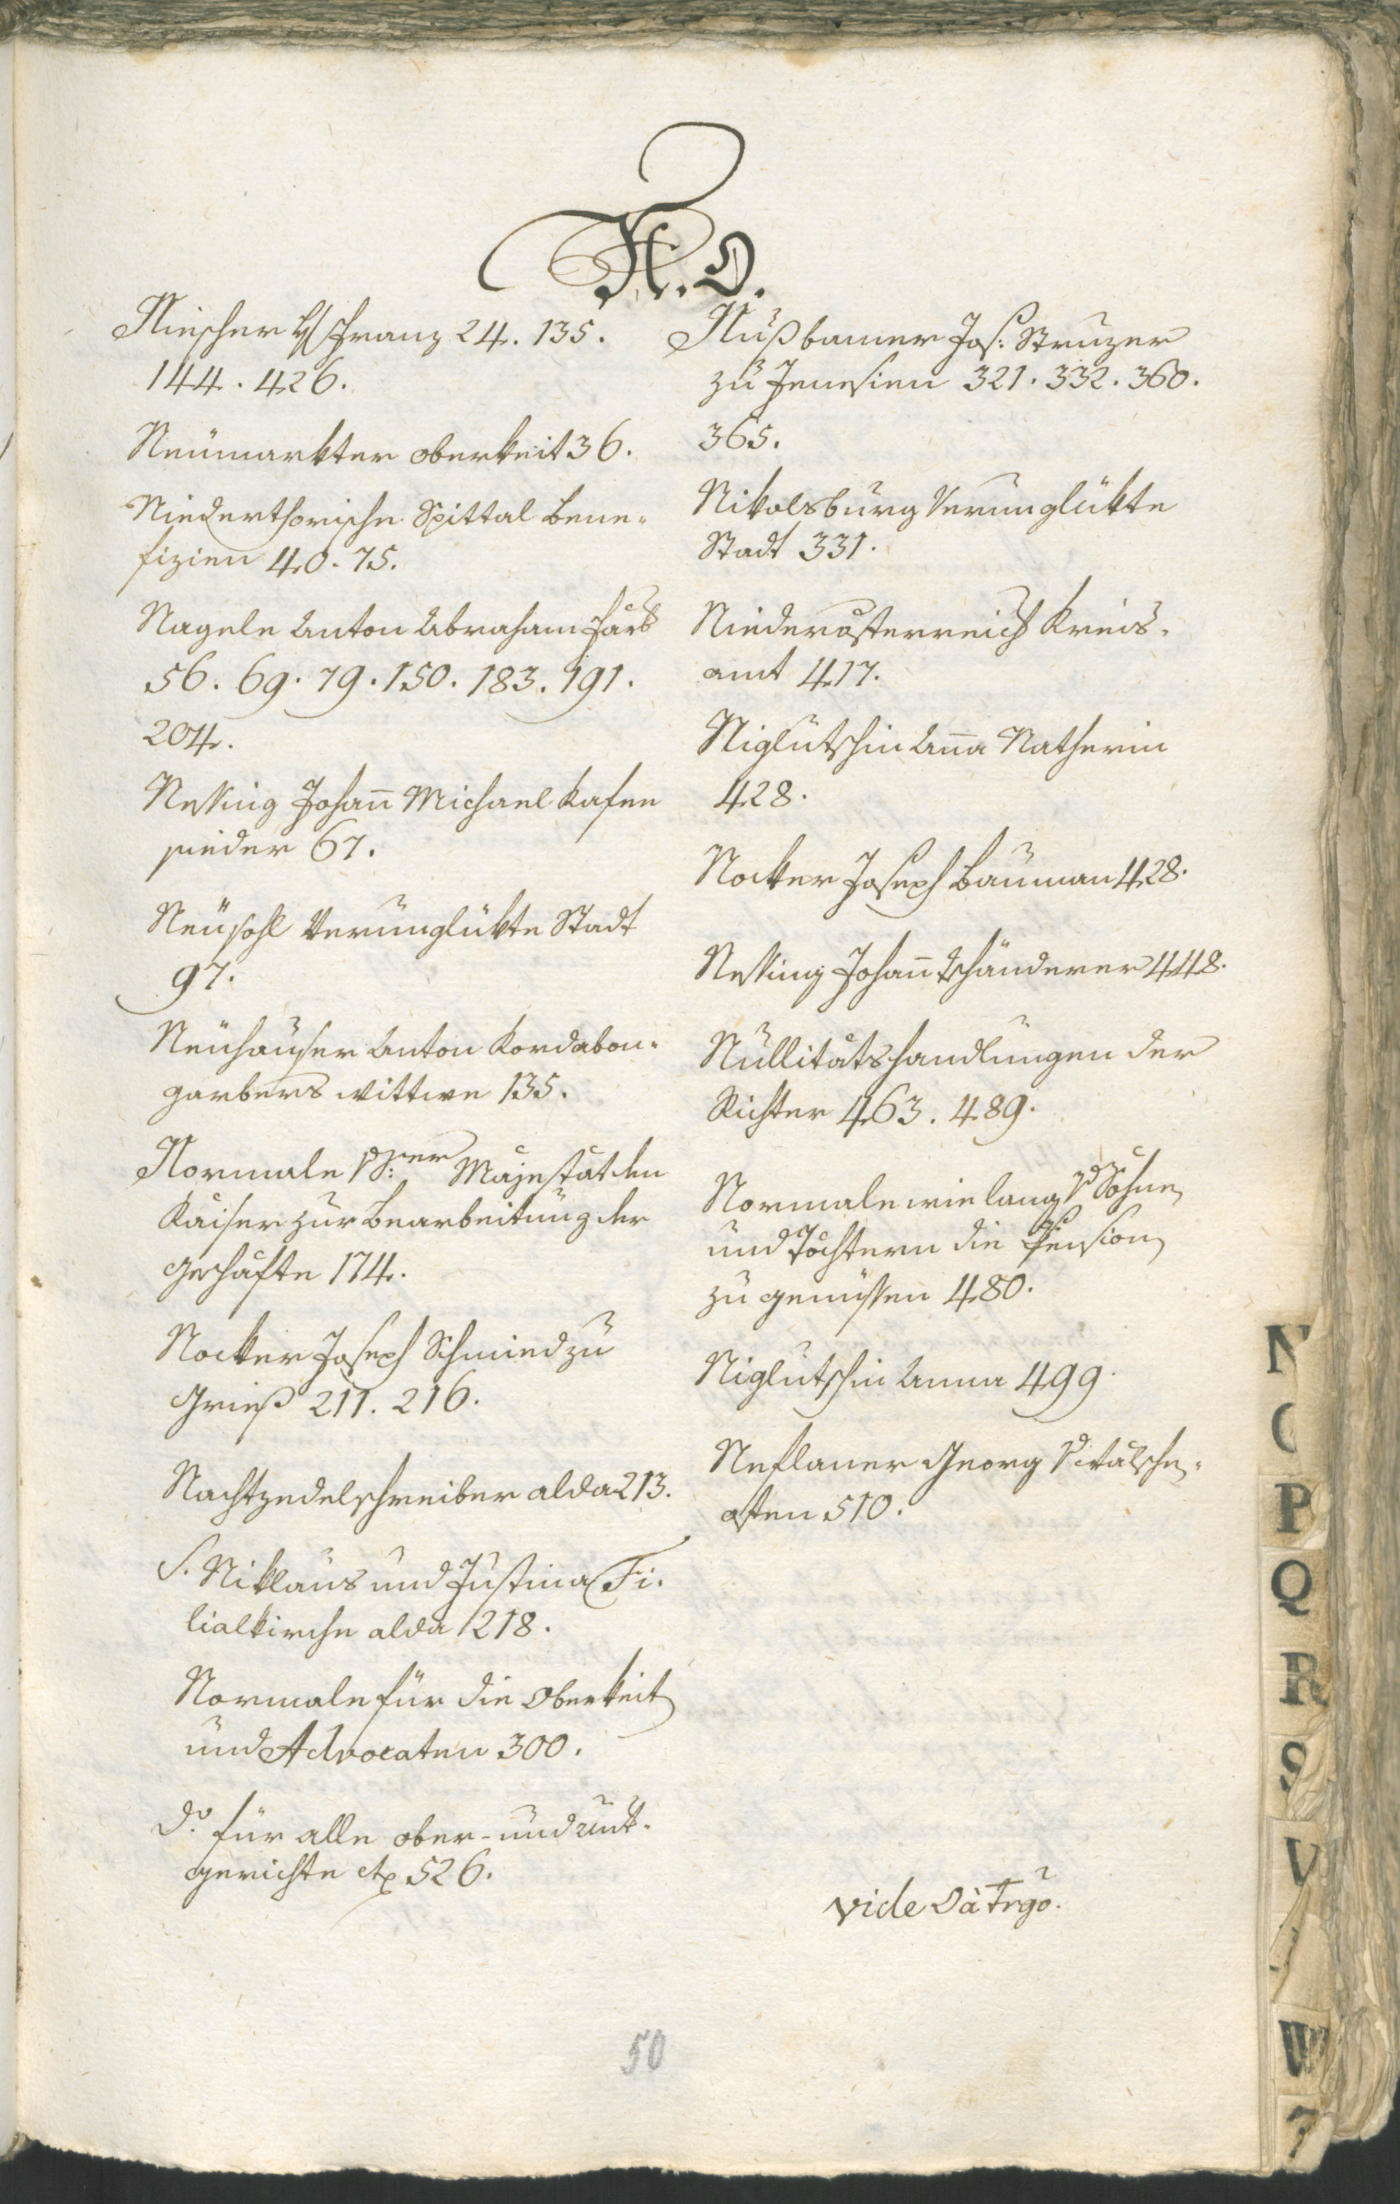 N. O.
Niescher Franz 24. 135.
144. 426.
Neümarkter oberkeit 36.
Niederthorische Spittal Bene-
fizien 40. 75.
Nagele Anton Abraham Färb
56. 69. 79. 150. 183. 191.
204.
Nessing Johann Michael Kafee
sieder 67.
Neüsohl Verunglükte Stadt
97.
Neühauser Anton Kordabon-
garbers wittwe 135.
Normale Sr. Majestät des
Kaiser zur Bearbeitung der
geschäfte 174.
Nocker Joseph Schmied zu
Grieß 211. 216.
Nachtzedelschreiber alda 213.
S. Niklaus und Justina Fi-
lialkirche alda 218.
Normale für die Oberkeit
und Advocaten 300.
do. für alle ober- und unt.
gerichte etc 526.
Nußbamer Jos: Struzer
zu Jenesien 321. 332. 360.
365.
Nikolsburg Verunglükte
Stadt 331.
Niederösterreich Kreis-
amt 417.
Niglutschin Anna Natherin
428.
Nocker Joseph Bauman 428.
Nessing Johann Tschänderer 448.
Nullitätshandlungen der
Richter 463. 489.
Normale wie lang Söhne
und Töchtern die Pension
zu genüssen 480.
Niglutschin Anna 499.
Neslauer Georg
510.
vide O à Trgo.
50
N
O
P
Q
R
S
V
W
Z